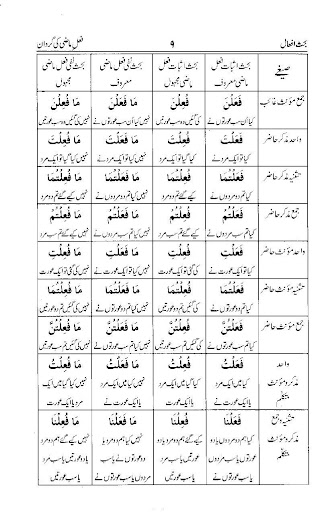 بحث افعال ۹ فعل ماضی کی گردان
صیغے بحث اثبات فعل بحث اثبات فعل بحث نفی فعل ماضی بحث نفی فعل ماضی
ماضی معروف ماضی مجہول معروف مجہول
جمع مؤنث غائب فَعَلْنَ فُعِلْنَ مَا فَعَلْنَ مَا فُعِلْنَ
کیا ان سب عورتوں نے کی گئیں وہ سب عورتیں نہیں کیا ان سب عورتوں نے نہیں کی گئیں وہ سب عورتیں
واحد مذکر حاضر فَعَلْتَ فُعِلْتَ مَا فَعَلْتَ مَا فُعِلْتَ
کیا تو ایک مرد نے کیا گیا تو ایک مرد نہیں کیا تو ایک مرد نے نہیں کیا گیا تو ایک مرد
تثنیہ مذکر حاضر فَعَلْتُمَا فُعِلْتُمَا مَا فَعَلْتُمَا مَا فُعِلْتُمَا
کیا تم دو مردوں نے کیے گئے تم دو مرد نہیں کیا تم دو مردوں نے نہیں کیے گئے تم دو مرد
جمع مذکر حاضر فَعَلْتُمْ فُعِلْتُمْ مَا فَعَلْتُمْ مَا فُعِلْتُمْ
کیا تم سب مردوں نے کیے گئے تم سب مرد نہیں کیا تم سب مردوں نے نہیں کیے گئے تم سب مرد
واحد مؤنث حاضر فَعَلْتِ فُعِلْتِ مَا فَعَلْتِ مَا فُعِلْتِ
کیا تو ایک عورت نے کی گئی تو ایک عورت نہیں کیا تو ایک عورت نے نہیں کی گئی تو ایک عورت
تثنیہ مؤنث حاضر فَعَلْتُمَا فُعِلْتُمَا مَا فَعَلْتُمَا مَا فُعِلْتُمَا
کیا تم دو عورتوں نے کی گئیں تم دو عورتیں نہیں کیا تم دو عورتوں نے نہیں کی گئیں تم دو عورتیں
جمع مؤنث حاضر فَعَلْتُنَّ فُعِلْتُنَّ مَا فَعَلْتُنَّ مَا فُعِلْتُنَّ
کیا تم سب عورتوں نے کی گئیں تم سب عورتیں نہیں کیا تم سب عورتوں نے نہیں کی گئیں تم سب عورتیں
واحد فَعَلْتُ فُعِلْتُ مَا فَعَلْتُ مَا فُعِلْتُ
مذکر و مؤنث کیا میں ایک مرد کیا گیا میں ایک مرد نہیں کیا میں ایک مرد نہیں کیا گیا میں ایک
متکلم یا ایک عورت نے یا ایک عورت یا ایک عورت نے مرد یا ایک عورت
تثنیہ و جمع فَعَلْنَا فُعِلْنَا مَا فَعَلْنَا مَا فُعِلْنَا
مذکر و مؤنث کیا ہم دو مردوں یا دو کیے گئے ہم دو مرد یا نہیں کیا ہم دو مردوں نہیں کیے گئے ہم دو مرد
متکلم عورتوں نے یا سب دو عورتیں یا سب مرد یا دو عورتوں نے یا سب یا دو عورتیں یا سب مرد
مردوں یا سب عورتوں نے یا سب عورتیں مردوں یا سب عورتوں نے یا سب عورتیں